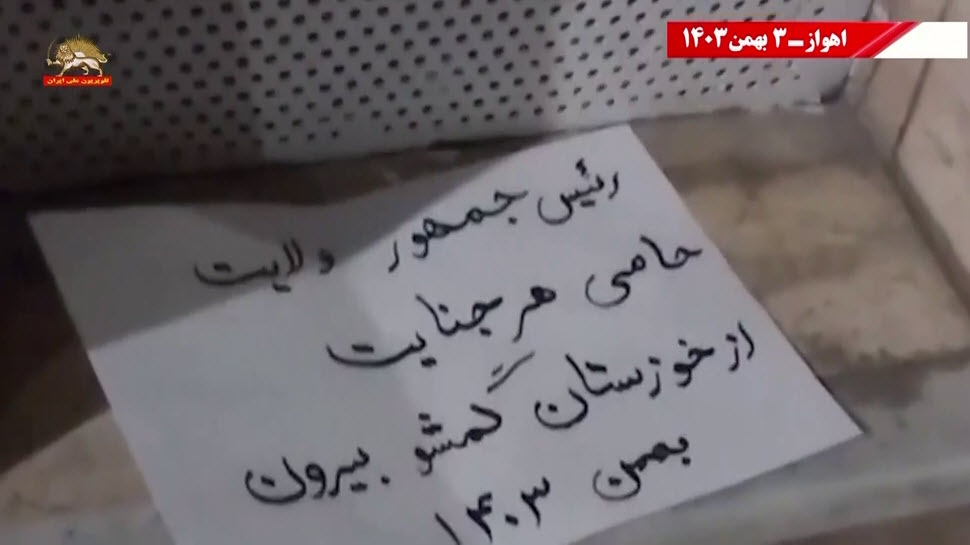 اهواز ـ ۳ بهمن ۱۴۰۳
تلویزیون ملی ایران
رئیس جمهور ولایت
حامی هر جنایت
از خوزستان گمشو بیرون
بهمن ۱۴۰۳